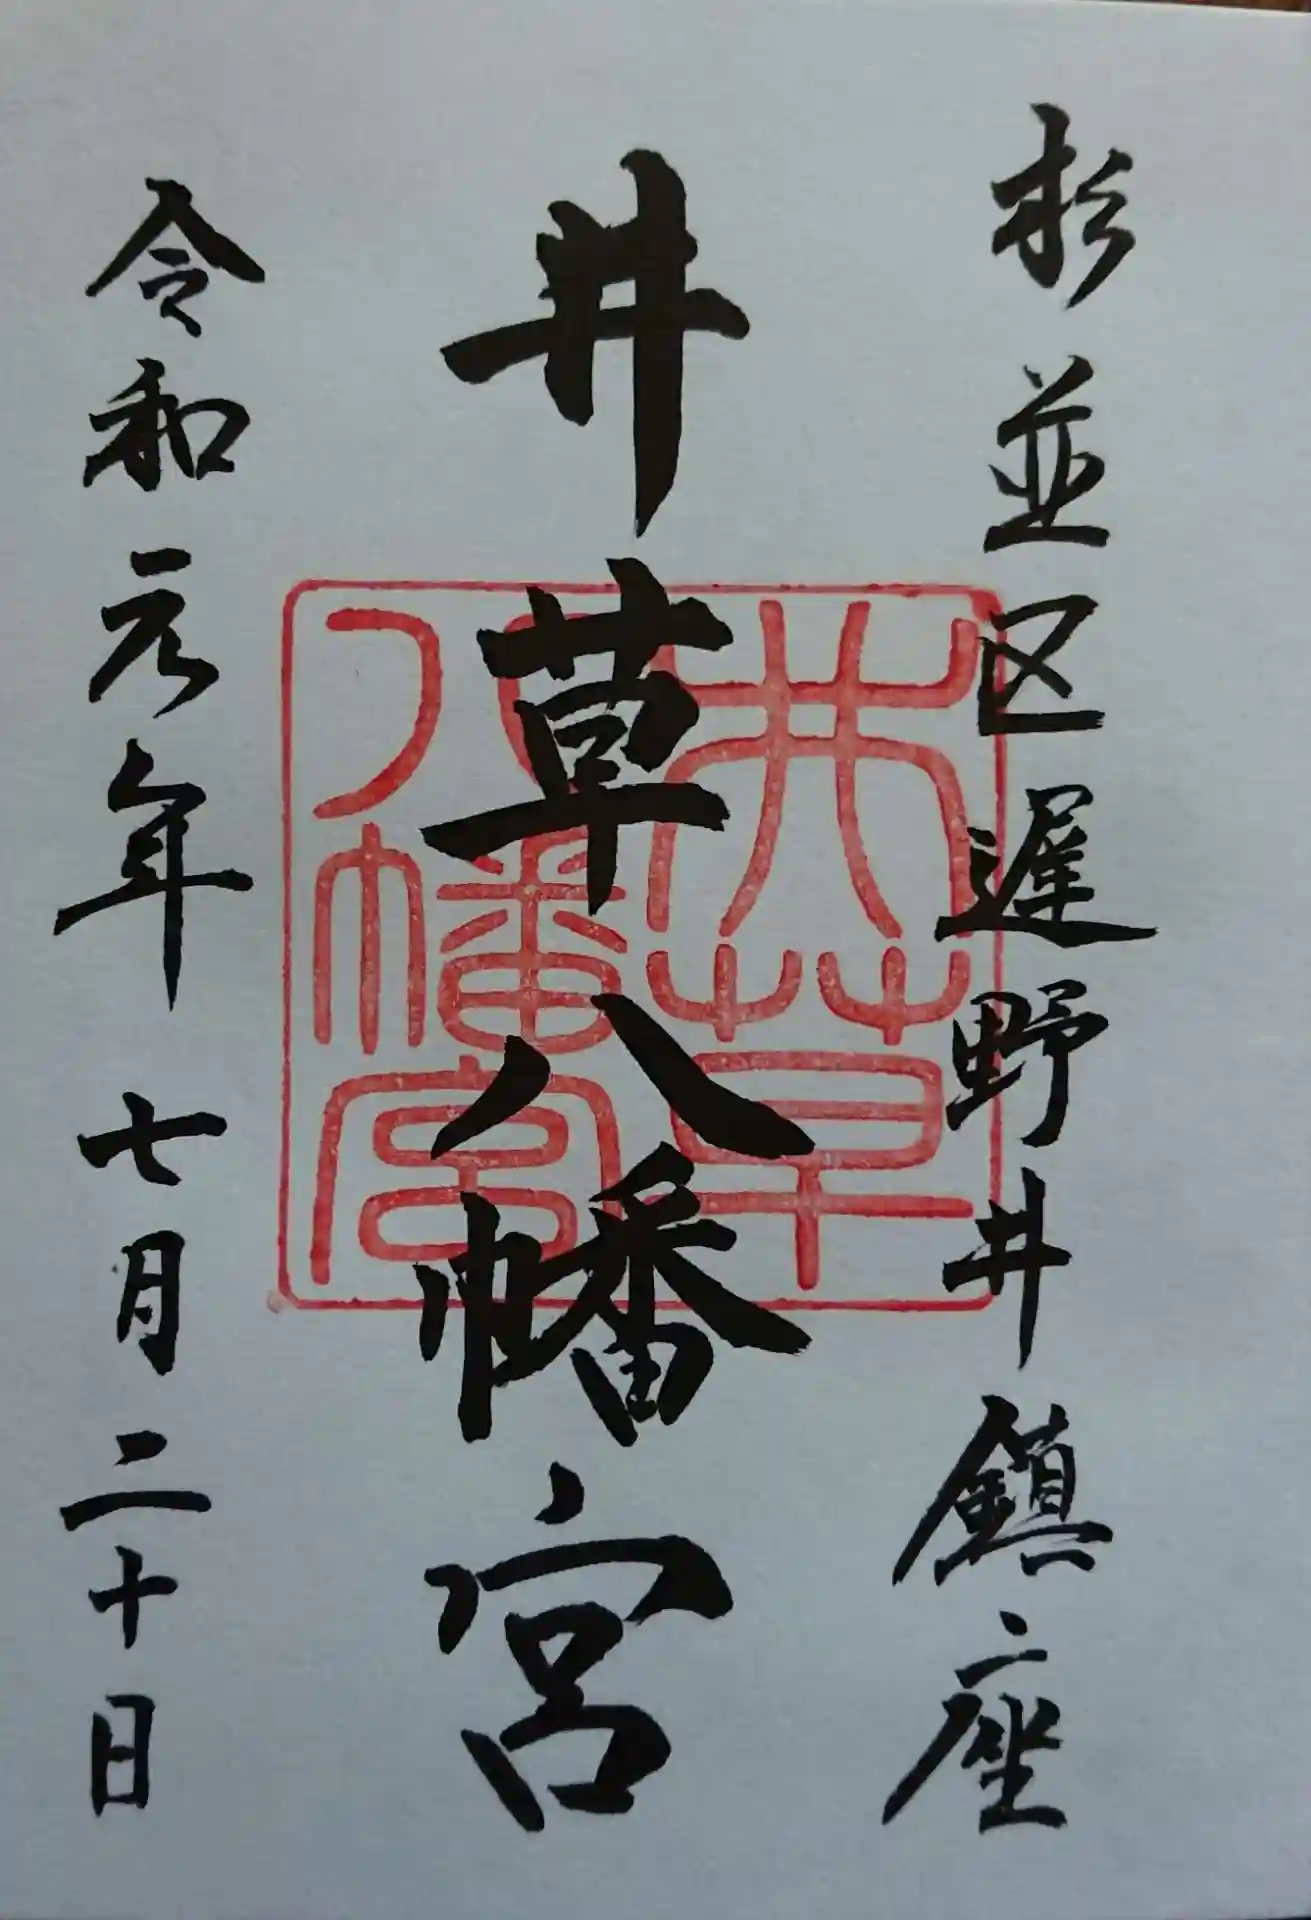 杉並区遅野井鎮座
井草八幡宮
令和元年 七月二十日
井草
八幡宮